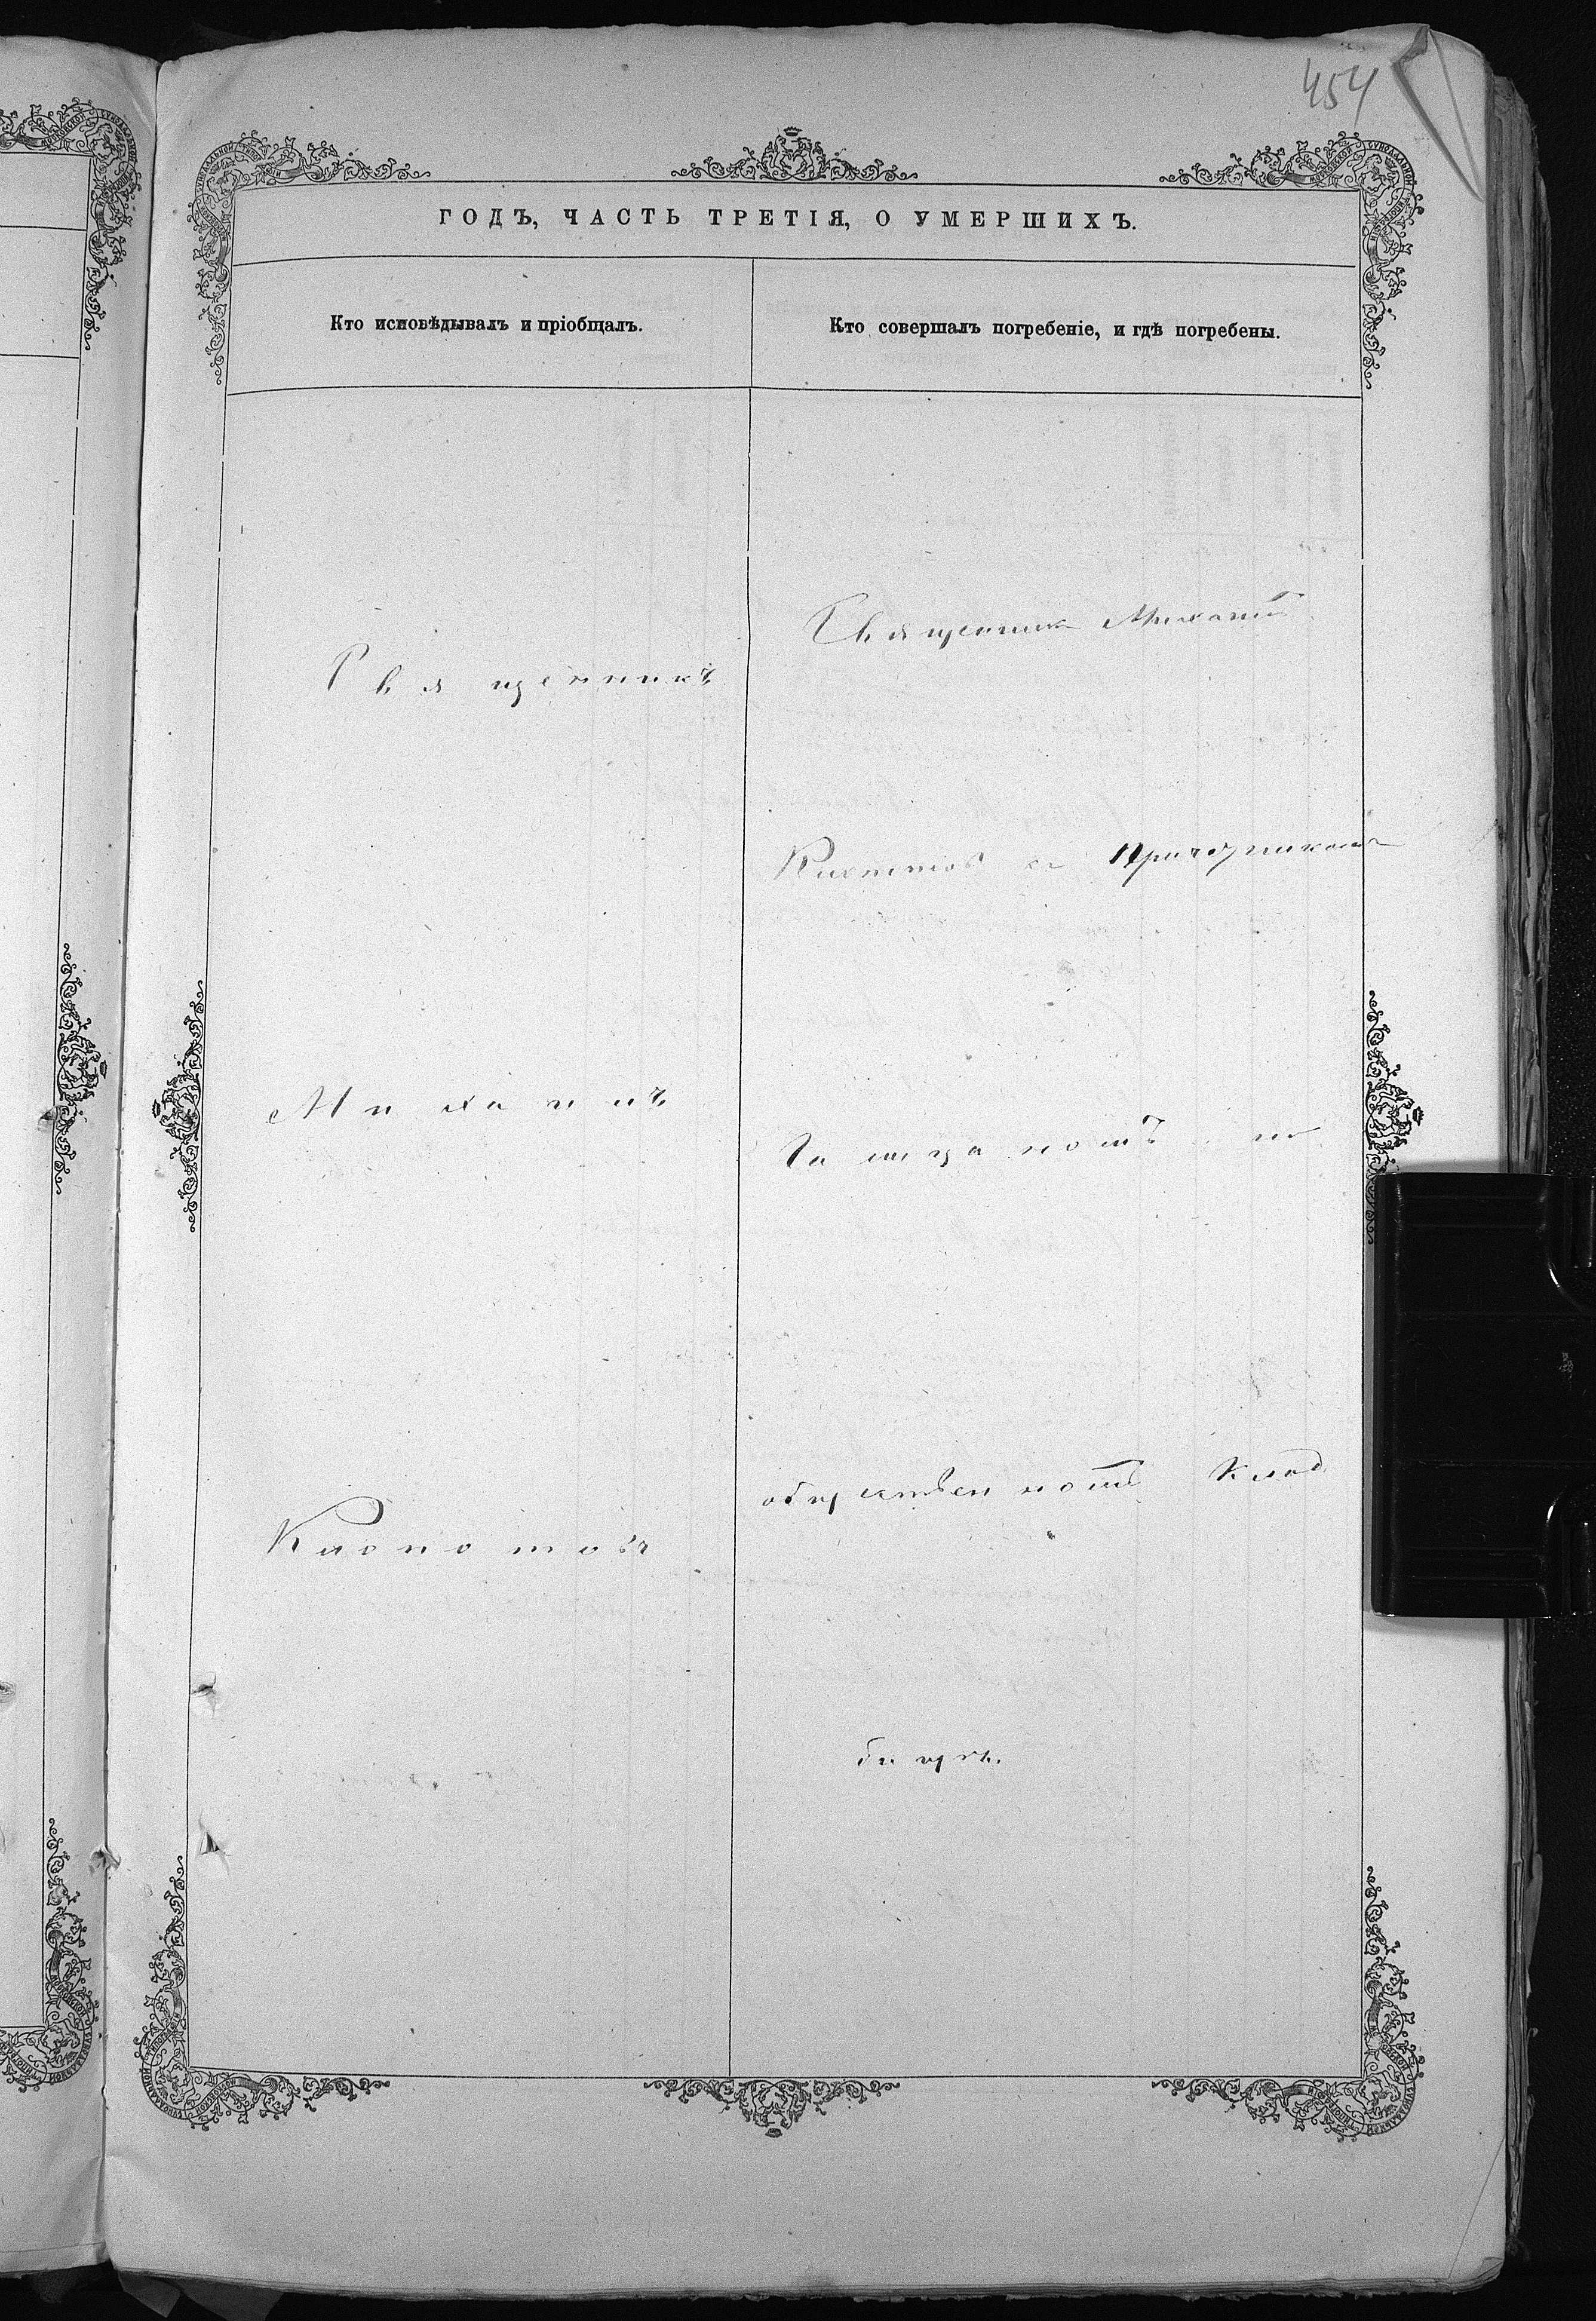 454
ГОДЪ, ЧАСТЬ ТРЕТІЯ, О УМЕРШИХЪ.
Кто исповѣдывалъ и пріобщалъ.
Кто совершалъ погребеніе, и гдѣ погребены.
Священникъ
Михаилъ
Священникъ Михаилъ
съ Причетникомъ
на
общественномъ Клад
бищѣ.